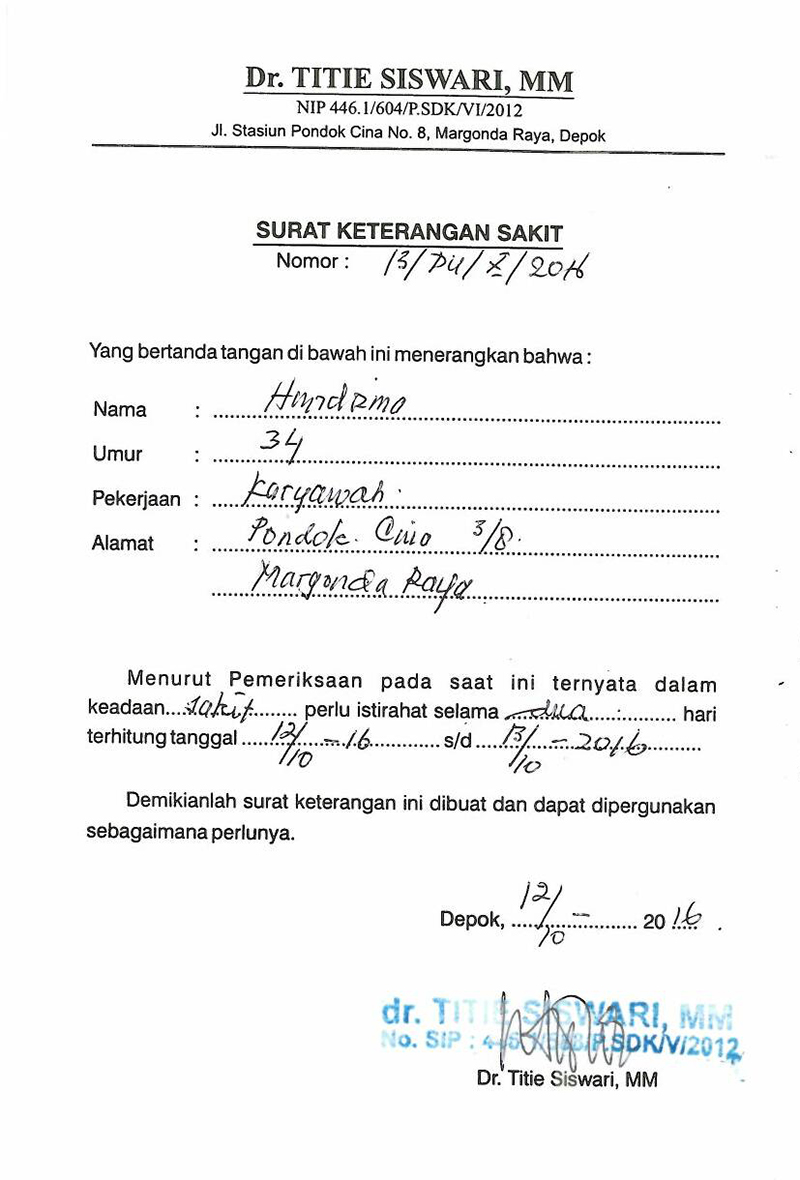 Dr. TITIE SISWARI, MM
NIP 446.1/604/P.SDK/VI/2012
Jl. Stasiun Pondok Cina No. 8, Margonda Raya, Depok
SURAT KETERANGAN SAKIT
Nomor : 13/DU/X/2016
Yang bertanda tangan di bawah ini menerangkan bahwa :
Nama :
Umur : 34
Pekerjaan : Karyawan
Alamat : Pondok Cina 3/8.
Margonda Raya
Menurut Pemeriksaan pada saat ini ternyata dalam
keadaan....sakit........ perlu istirahat selama ....dua............ hari
terhitung tanggal ....12/10 - 16............ s/d ....13/10 - 2016..........
Demikianlah surat keterangan ini dibuat dan dapat dipergunakan
sebagaimana perlunya.
Depok, ....12/10 - ............ 2016 .
dr. TITIE SISWARI, MM
No. SIP : P.SDK/V/2012
Dr. Titie Siswari, MM